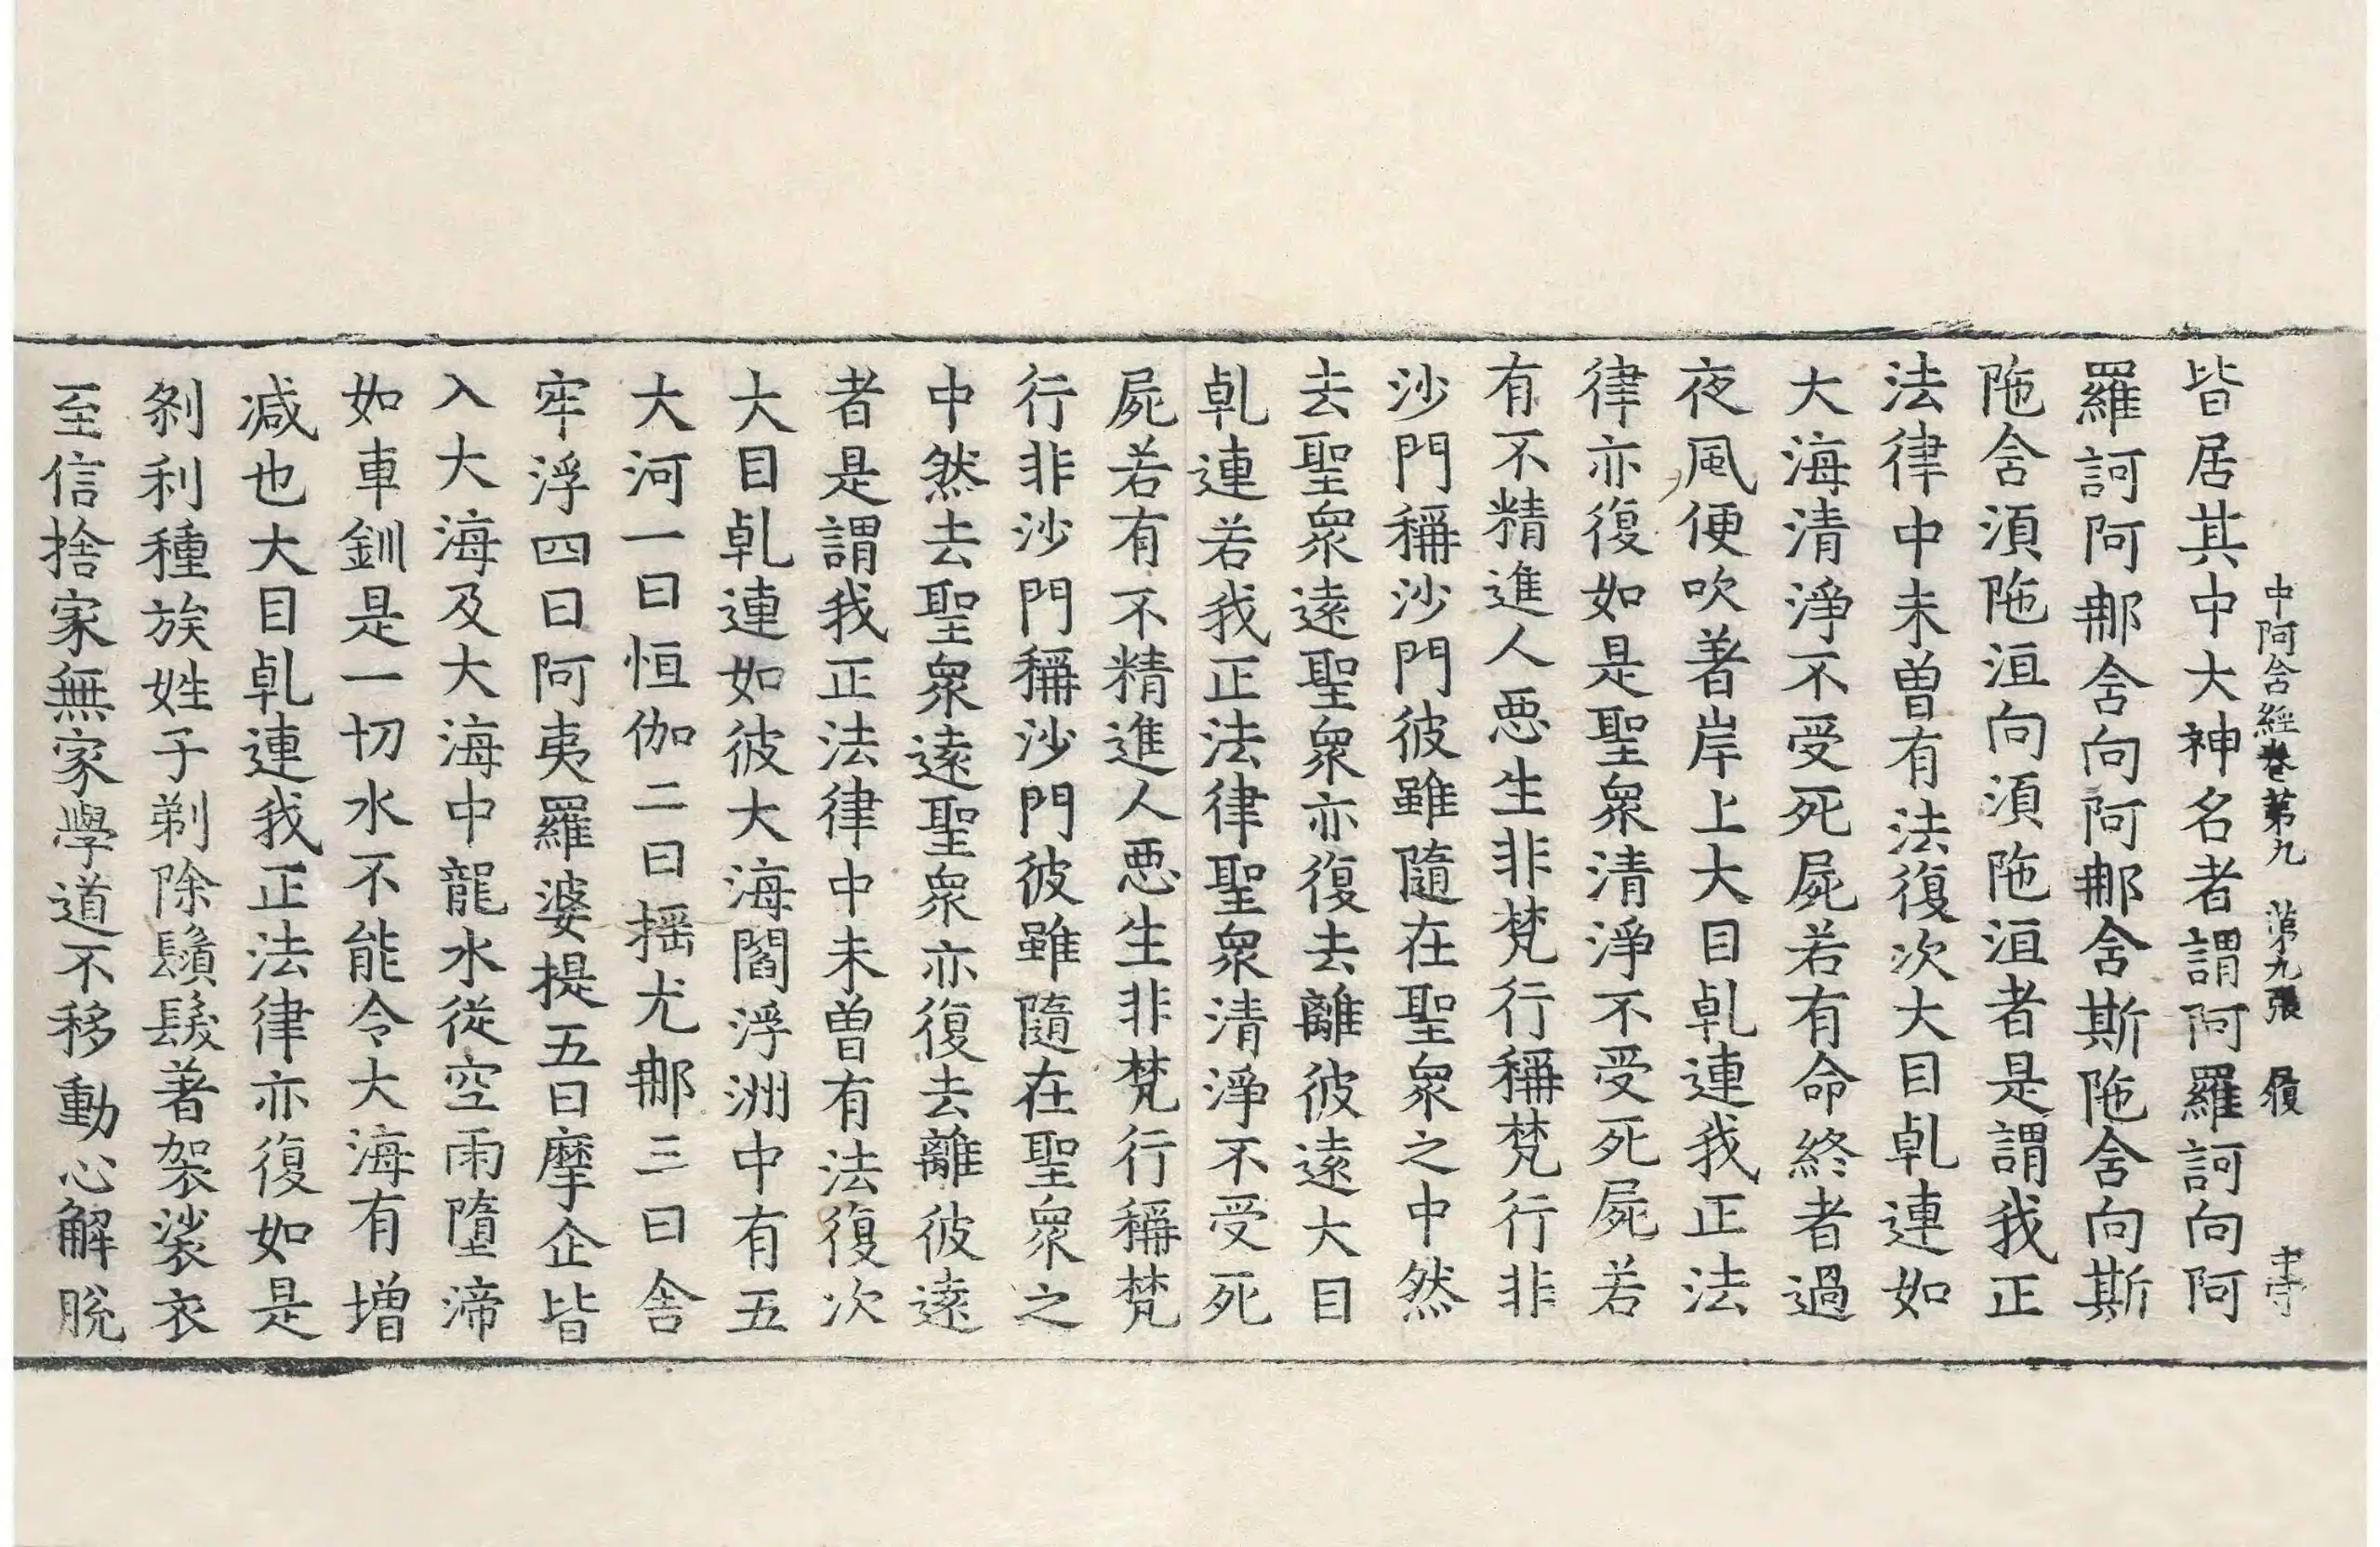 中阿含經卷第九 第九張 履 中守
皆居其中大神名者謂阿羅訶向阿
羅訶阿那舍向阿那舍斯陁舍向斯
陁舍湏陁洹向湏陁洹者是謂我正
法律中未曽有法復次大目乹連如
大海清淨不受死屍若有命終者過
夜風便吹著岸上大目乹連我正法
律亦復如是聖衆清淨不受死屍若
有不精進人惡生非梵行稱梵行非
沙門稱沙門彼雖隨在聖衆之中然
去聖衆遠聖衆亦復去離彼遠大目
乹連若我正法律聖衆清淨不受死
屍若有不精進人惡生非梵行稱梵
行非沙門稱沙門彼雖隨在聖衆之
中然去聖衆遠聖衆亦復去離彼遠
者是謂我正法律中未曽有法復次
大目乹連如彼大海閻浮洲中有五
大河一曰恒伽二曰摇尤那三曰舎
牢浮四曰阿夷羅婆提五曰摩企皆
入大海及大海中龍水從空雨墮渧
如車釧是一切水不能令大海有增
减也大目乹連我正法律亦復如是
剎利種族姓子剃除鬚髮著袈裟衣
至信捨家無家學道不移動心解脫